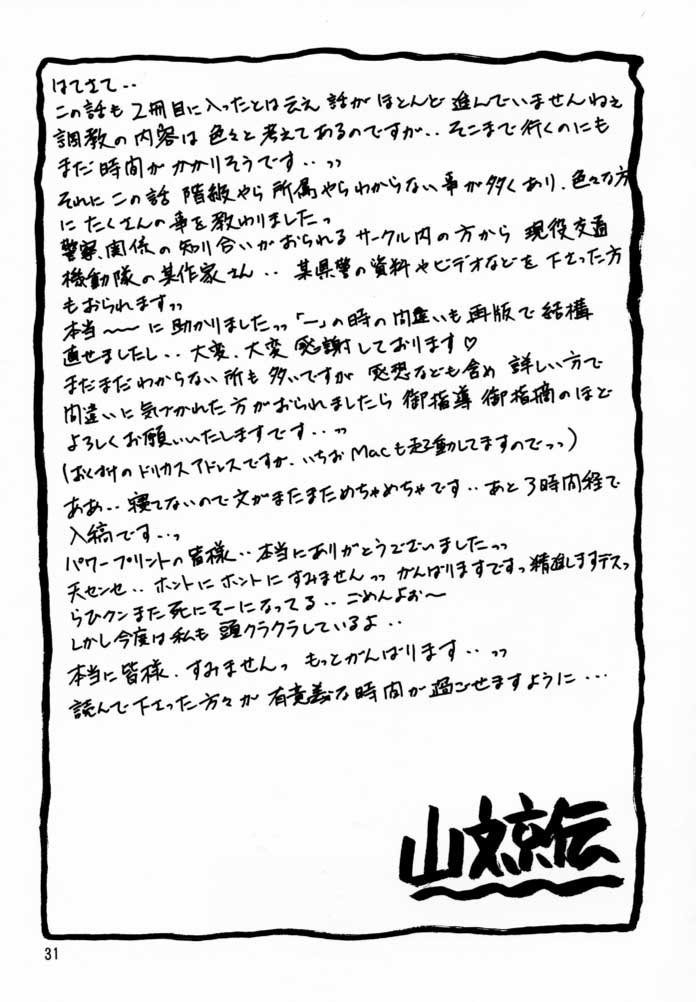 はてさて‥
この話も 2冊目に入ったとは云え 話が ほとんど 進んでいませんねぇ
調教の内容は 色々と考えてあるのですが‥そこまで行くのにも
まだ時間が かかりそうです‥ッッ
それに この話 階級やら 所属やらわからない事が多くあり、色々な方
にたくさんの事を教わりましたっ
警察関係の知り合いがおられる サークル内の方から 現役交通
機動隊の某作家さん‥ 某県警の資料やビデオなどを 下さった方
もおられますッッ
本当〜〜に助かりましたッッ「一」の時の間違いも再版で結構
直せましたし‥大変、大変 感謝しております♡
まだまだわからない所も多いですが 感想なども含め 詳しい方で
間違いに気づかれた方がおられましたら 御指導 御指摘のほど
よろしくお願いいたしますです‥ッッ
(おくづけのドリカスアドレスですが、いちおMacも起動してますのでっっ)
ああ‥寝てないので文がまたまためちゃめちゃです‥あと3時間経で
入稿です‥っ
パワープリントの皆様‥本当にありがとうございましたッッ
天センセ‥ホントにホントにすみませんッッ がんばりますですっ精進しますデスっ
らひクンまた死にそーになってる‥ごめんよお〜
しかし今度は私も 頭クラクラしているよ‥
本当に皆様、すみませんっ もっとがんばります‥ッッ
読んで下さった方々が 有意義な時間が過ごせますように…
山文京伝
31